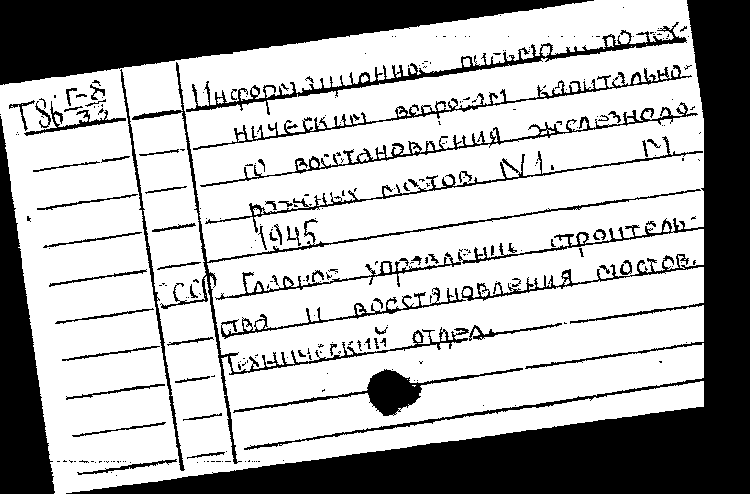 Т86 Г-8/33
Информационное письмо по тех-
ническим вопросам капитально-
го восстановления железнодо-
рожных мостов. N1. М.,
1945.
СССР. Главное управление строитель-
ства и восстановления мостов.
Технический отдел.